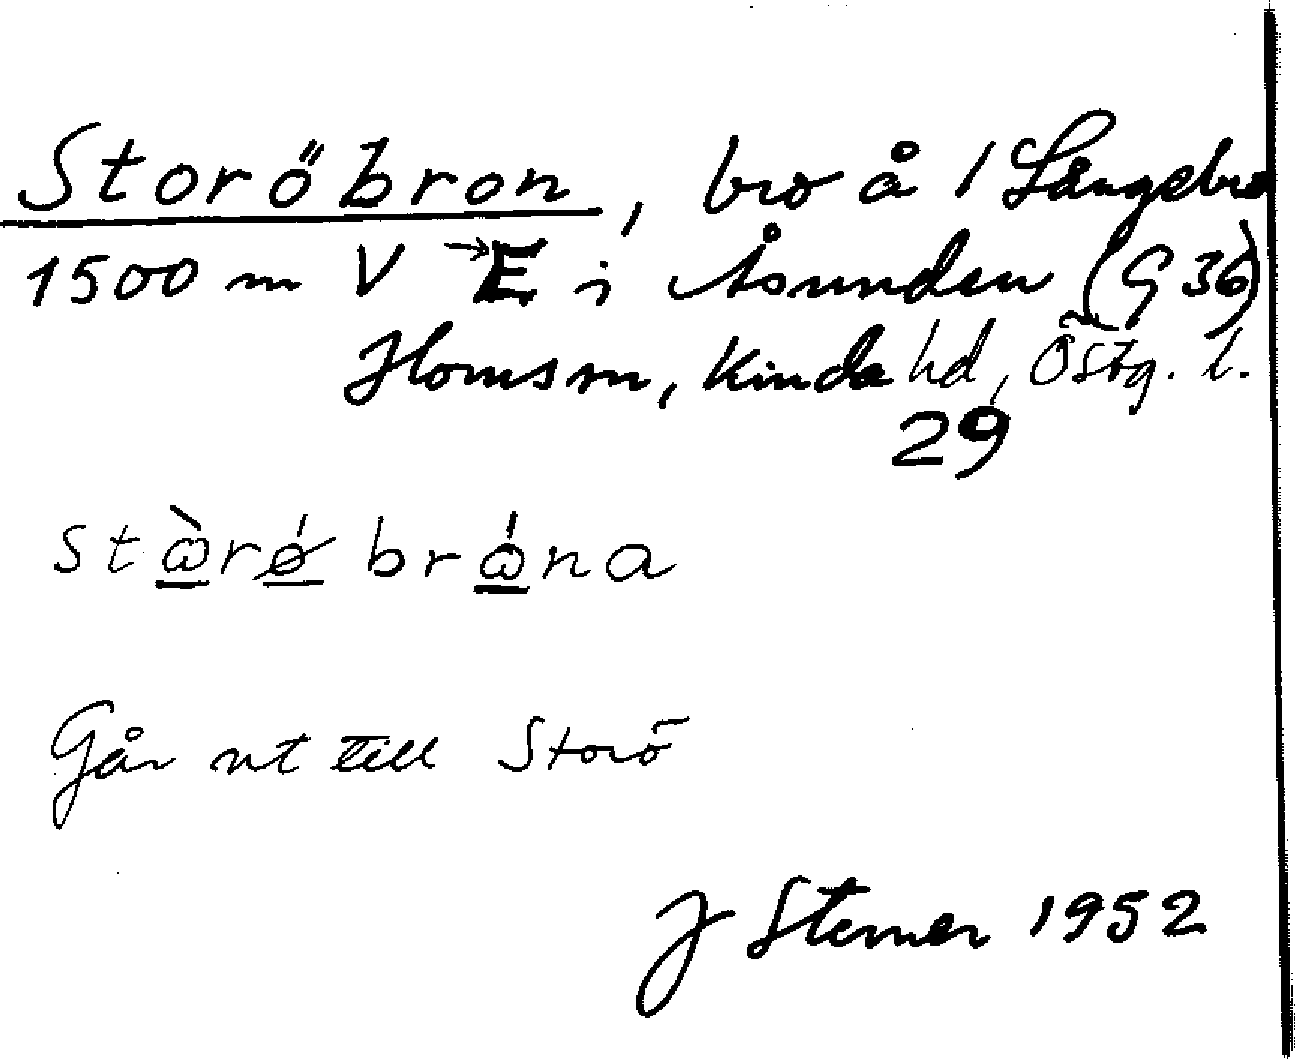 Storöbron, bro å 1 Långebro
1500 m V →E i Åsunden (G 36)
Horns sn, Kinda hd, Östg. l.
29
stὼ̲rǿ̲ brώ̲na
Går ut till Storö
J Sterner 1952